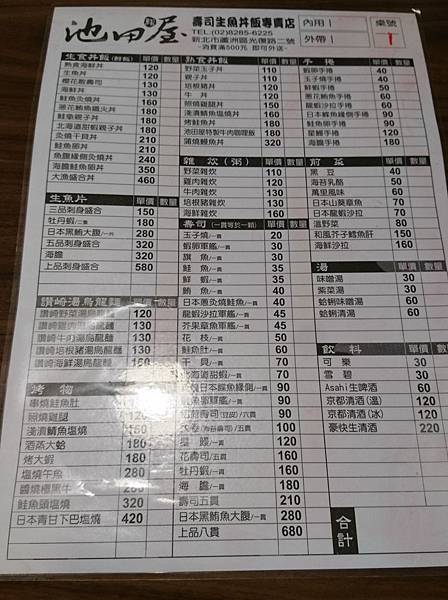 池田屋
壽司生魚丼飯專賣店
TEL:(02)8285-6225
新北市蘆洲區光復路二號
消費滿500元 即可外送
內用
外帶
桌號
1
生食丼飯(鮮料) 單價 數量
熟食海鮮丼 120
生魚丼 120
櫻花散壽司 130
海鮮丼 150
鮭魚炙燒丼 160
蔥花鮪魚鐵火丼 180
鮭魚親子丼 180
北海道甜蝦親子丼 180
炙燒干貝丼 210
鮭魚卵丼 210
魚腹緣側炙燒丼 240
海膽鮭魚卵丼 350
大漁盛合丼 460
生魚片 單價 數量
三品刺身盛合 150
牡丹蝦/二隻 180
日本黑鮪大腹/一片 280
五品刺身盛合 320
海膽 320
上品刺身盛合 580
讚岐湯烏龍麵 單價 數量
讚岐野菜湯烏龍麵 120
讚岐雞肉湯烏龍麵 130
讚岐牛肉湯烏龍麵 130
讚岐培根豬湯烏龍麵 130
讚岐海鮮湯烏龍麵 150
烤物 單價 數量
串燒鮭魚肚 120
照燒雞腿 120
淺漬鯖魚塩燒 150
酒蒸大蛤 180
烤大蝦 180
塩燒午魚
鮭魚頭塩燒 320
日本青甘下巴塩燒 420
熟食丼飯 單價 數量
野菜玉子丼 110
親子丼 120
培根豬丼 120
牛丼 120
照燒雞腿丼 150
淺漬鯖魚塩燒丼 160
烤鮭魚丼 180
池田屋特製牛肉咖哩飯 180
蒲燒鰻魚丼 320
雜炊(粥) 單價 數量
野菜雜炊 110
雞肉雜炊 120
牛肉雜炊 130
培根豬雜炊 130
海鮮雜炊 160
壽司(一貫等於一顆) 單價 數量
玉子燒/一貫 20
蝦卵軍艦/一貫 30
旗魚/一貫 30
鮭魚/一貫 35
鮮蝦/一貫 35
鮪魚/一貫 40
日本蔥炙燒鮭魚/一貫 40
龍蝦沙拉軍艦/一貫 45
芥果章魚軍艦/一貫 45
花枝/一貫 50
鮭魚肚/一貫 60
干貝/一貫 70
北海道甜蝦/一貫 70
花壽司/五貫 160
牡丹蝦/一貫 160
海膽/一貫 180
壽司五貫 210
日本黑鮪魚大腹/一貫 280
上品八貫 680
手捲 單價 數量
蝦卵手捲 40
玉子燒手捲 40
蔥花鮪魚手捲 60
龍蝦沙拉手捲 60
日本鱈魚緣側手捲 90
鮭魚卵手捲 90
星鰻手捲 120
海膽手捲 180
前菜 單價 數量
黑豆 40
海苔乳酪 50
萬里風味 60
日本山葵章魚 70
日本龍蝦沙拉 70
溫野菜 80
和風芥子鱈魚肝 150
海鮮沙拉 160
湯 單價 數量
味噌湯 30
紫菜湯 30
蛤蜊味噌湯 60
蛤蜊清湯 60
飲料 單價 數量
可樂 30
雪碧 30
Asahi生啤酒 60
京都清酒(溫) 120
京都清酒(冰) 120
豪快生清酒 220
合計